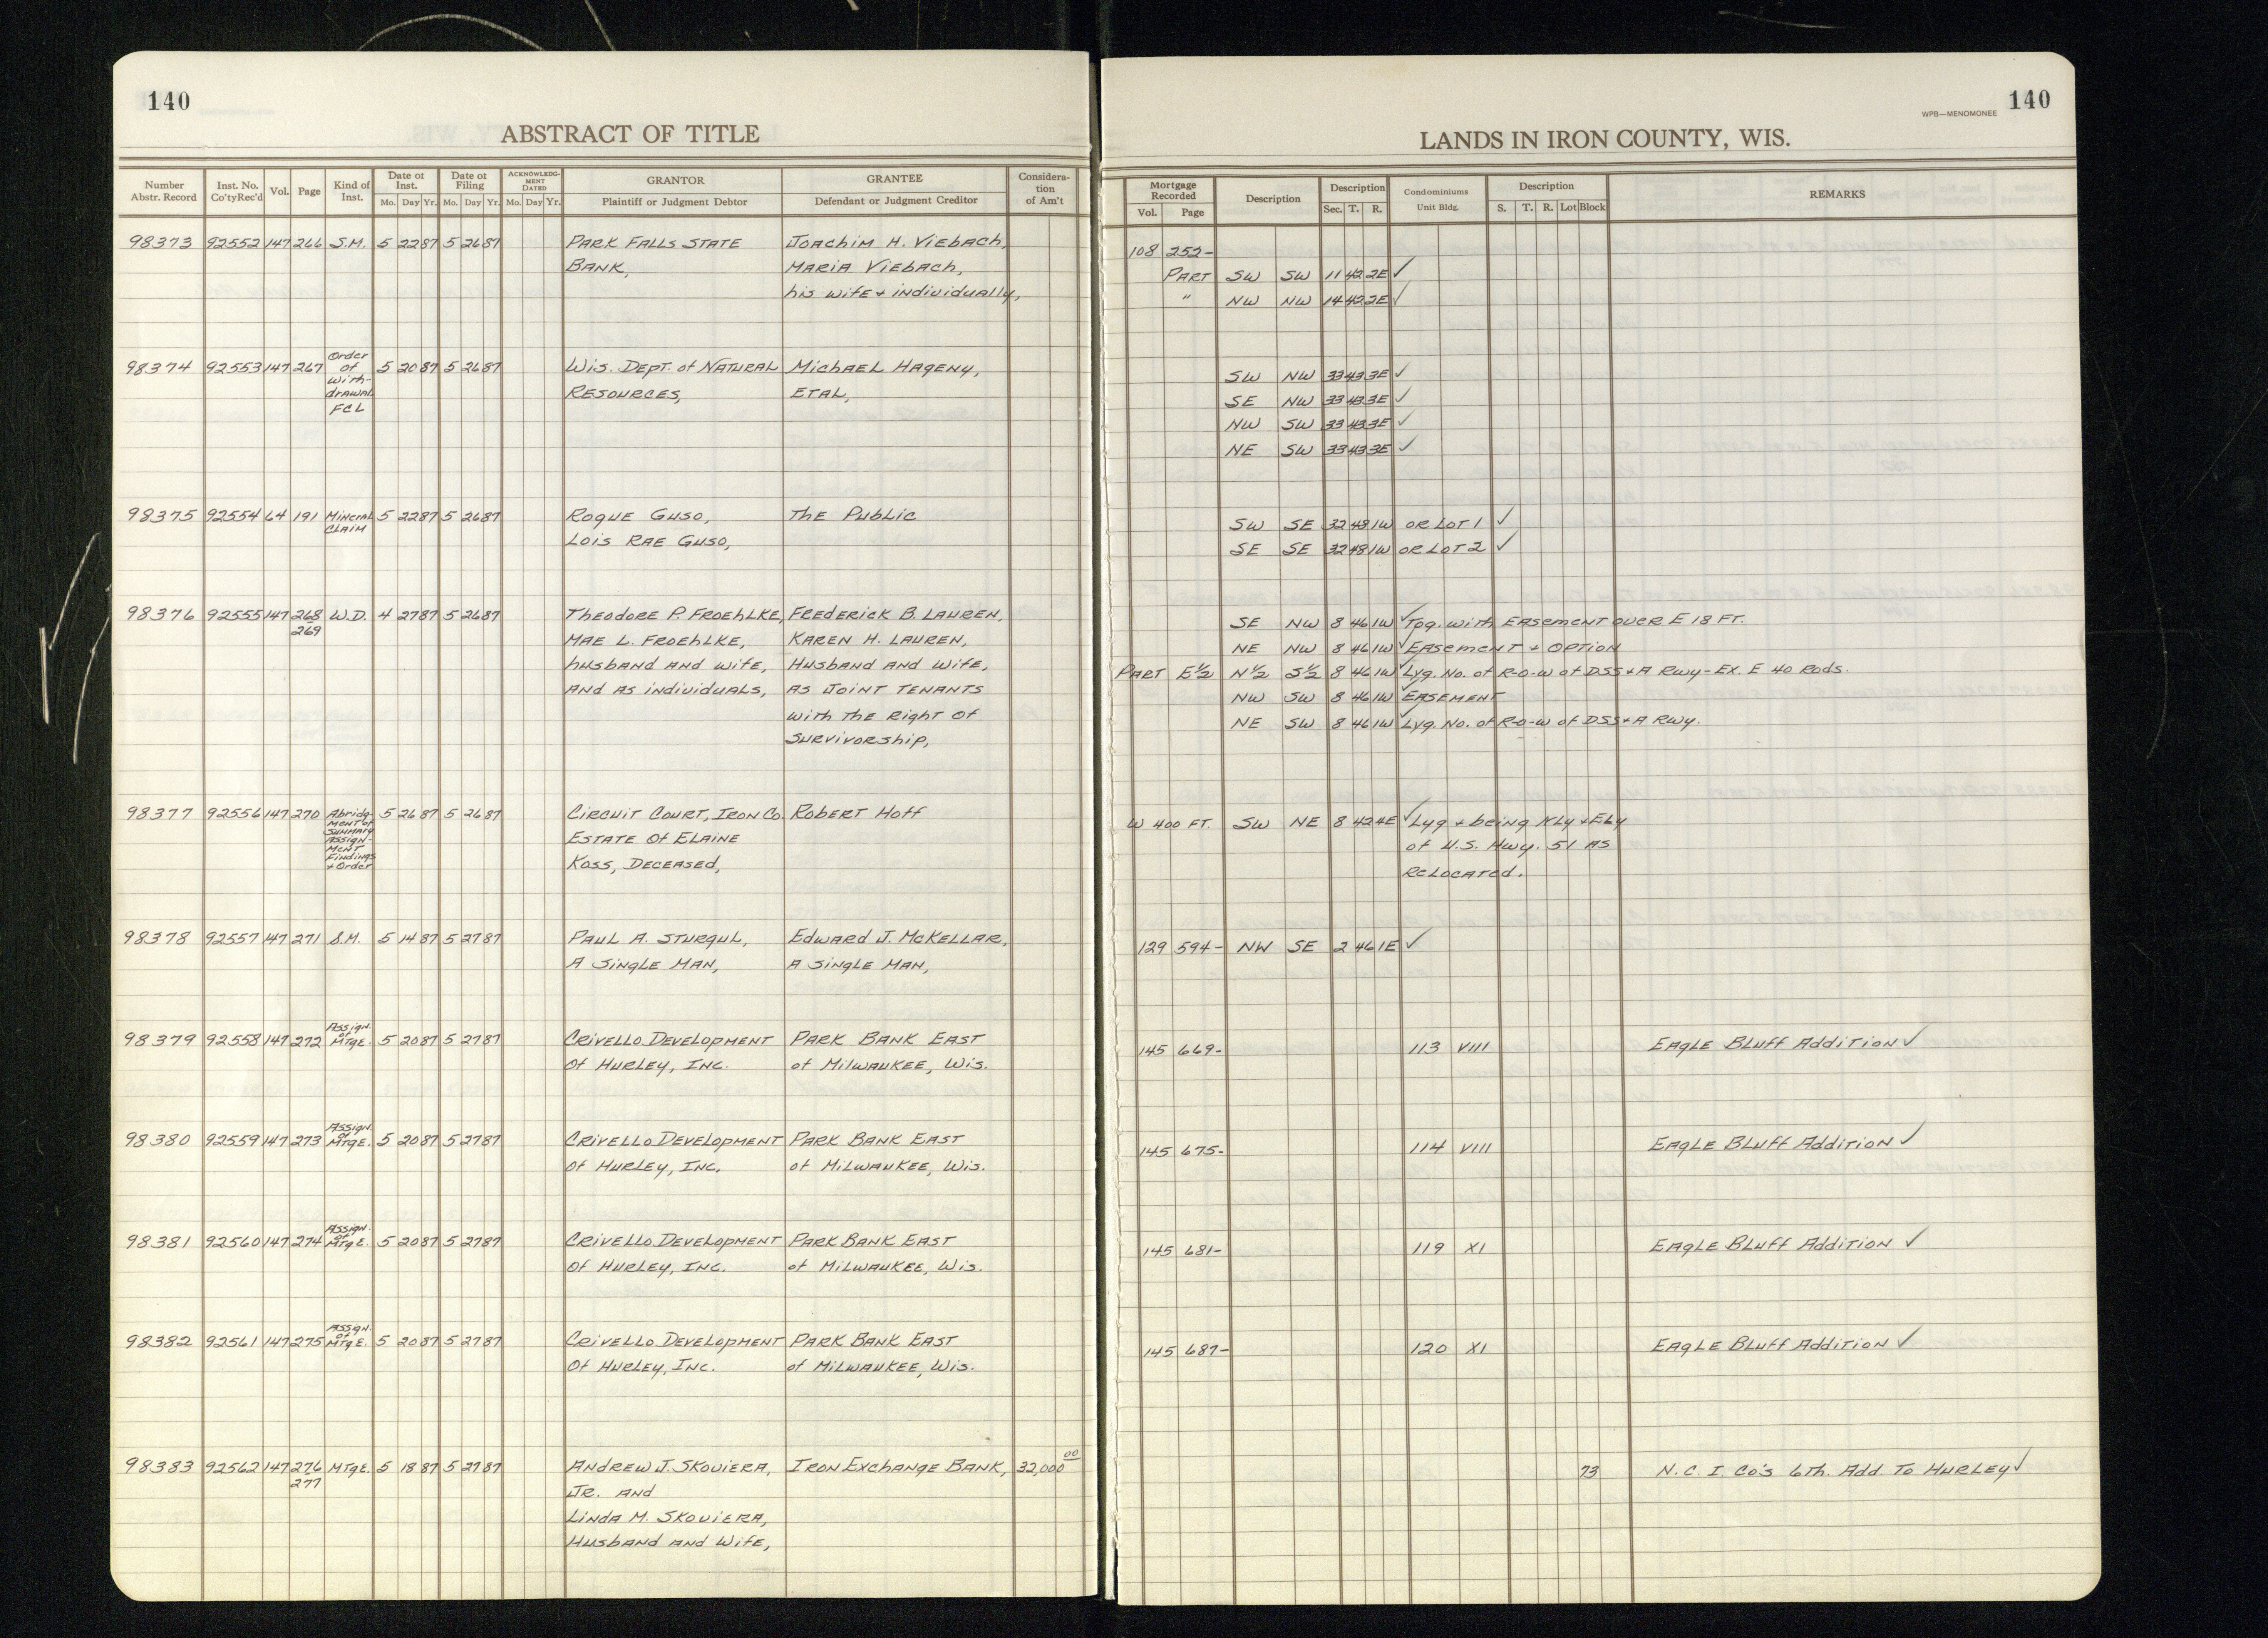 140
ABSTRACT OF TITLE
Number Abstr. Record | Inst. No. Co'tyRec'd | Vol. | Page | Kind of Inst. | Date of Inst. Mo. Day Yr. | Date of Filing Mo. Day Yr. | ACKNOWLEDGMENT DATED Mo. Day Yr. | GRANTOR Plaintiff or Judgment Debtor | GRANTEE Defendant or Judgment Creditor | Consideration of Am't
98373 92552 147 266 S.M. 5 22 87 5 26 87 PARK FALLS STATE Joachim H. Viebach,
BANK, MARIA Viebach,
his wife + individually,
Order
98374 92553 147 267 of 5 20 87 5 26 87 Wis. Dept. of NATURAL MichAEL HAgeny,
With-
drawal RESOURCES, ETAL,
FCL
98375 92554 64 191 Mineral 5 22 87 5 26 87 Roque Guso, The Public
CLAIM Lois RAE GUSO,
98376 92555 147 268 W.D. 4 27 87 5 26 87 Theodore P. Froehlke, Frederick B. LAUREN,
269 MAE L. FROEHLKE, KAREN H. LAUREN,
husband and wife, Husband and wife,
and as individuals, as Joint TENANTS
with the Right of
Survivorship,
98377 92556 147 270 Abridg- 5 26 87 5 26 87 Circuit Court, Iron Co. Robert Hoff
ment of
Summary ESTATE Of ELAINE
Assign-
ment Koss, DECEASED,
Findings
+ Order
98378 92557 147 271 S.M. 5 14 87 5 27 87 PAUL A. STURGUL, Edward J. McKELLAR,
A Single MAN, A Single MAN,
Assign.
of
98379 92558 147 272 MTgE. 5 20 87 5 27 87 Crivello Development PARK BANK EAST
Of HURLEY, INC. of MilwAUKEE, Wis.
Assign.
of
98380 92559 147 273 MTgE. 5 20 87 5 27 87 Crivello Development PARK BANK EAST
Of HURLEY, INC. of MilwAUKEE, Wis.
Assign.
of
98381 92560 147 274 MTgE. 5 20 87 5 27 87 Crivello Development PARK BANK EAST
Of HURLEY, INC. of MilwAUKEE, Wis.
Assign.
of
98382 92561 147 275 MTgE. 5 20 87 5 27 87 Crivello Development PARK BANK EAST
Of HURLEY, INC. of MilwAUKEE, Wis.
98383 92562 147 276 MTgE. 5 18 87 5 27 87 ANDREW J. SKOVIERA, IRON EXCHANGE BANK, 32,000 00
277 JR. AND
LINDA M. SKOVIERA,
Husband and Wife,
140
WPB—MENOMONEE
LANDS IN IRON COUNTY, WIS.
Mortgage Recorded Vol. Page | Description | Description Sec. T. R. | Condominiums Unit Bldg. | Description S. T. R. Lot Block | REMARKS
108 252-
PART SW SW 11 42 2E ✓
" NW NW 14 42 2E ✓
SW NW 33 43 3E ✓
SE NW 33 43 3E ✓
NW SW 33 43 3E ✓
NE SW 33 43 3E ✓
SW SE 32 48 1W OR LOT 1 ✓
SE SE 32 48 1W OR LOT 2 ✓
SE NW 8 46 1W ✓ Tog. with EASEMENT OVER E 18 FT.
NE NW 8 46 1W ✓ EASEMENT + OPTION
PART E½ N½ S½ 8 46 1W ✓ Lyg. No. of R-o-w of DSS+A Rwy - Ex. E 40 Rods.
NW SW 8 46 1W ✓ EASEMENT
NE SW 8 46 1W ✓ Lyg. No. of R-o-w of DSS+A Rwy.
W 400 FT. SW NE 8 42 4E ✓ Lyg + being Nly + Ely
of U.S. Hwy. 51 AS
RELOCATED.
129 594- NW SE 2 46 1E ✓
145 669- 113 VIII EAGLE BLUFF Addition ✓
145 675- 114 VIII EAGLE BLUFF Addition ✓
145 681- 119 XI EAGLE BLUFF Addition ✓
145 687- 120 XI EAGLE BLUFF Addition ✓
73 N.C. I. Co's 6th. Add. To HURLEY ✓